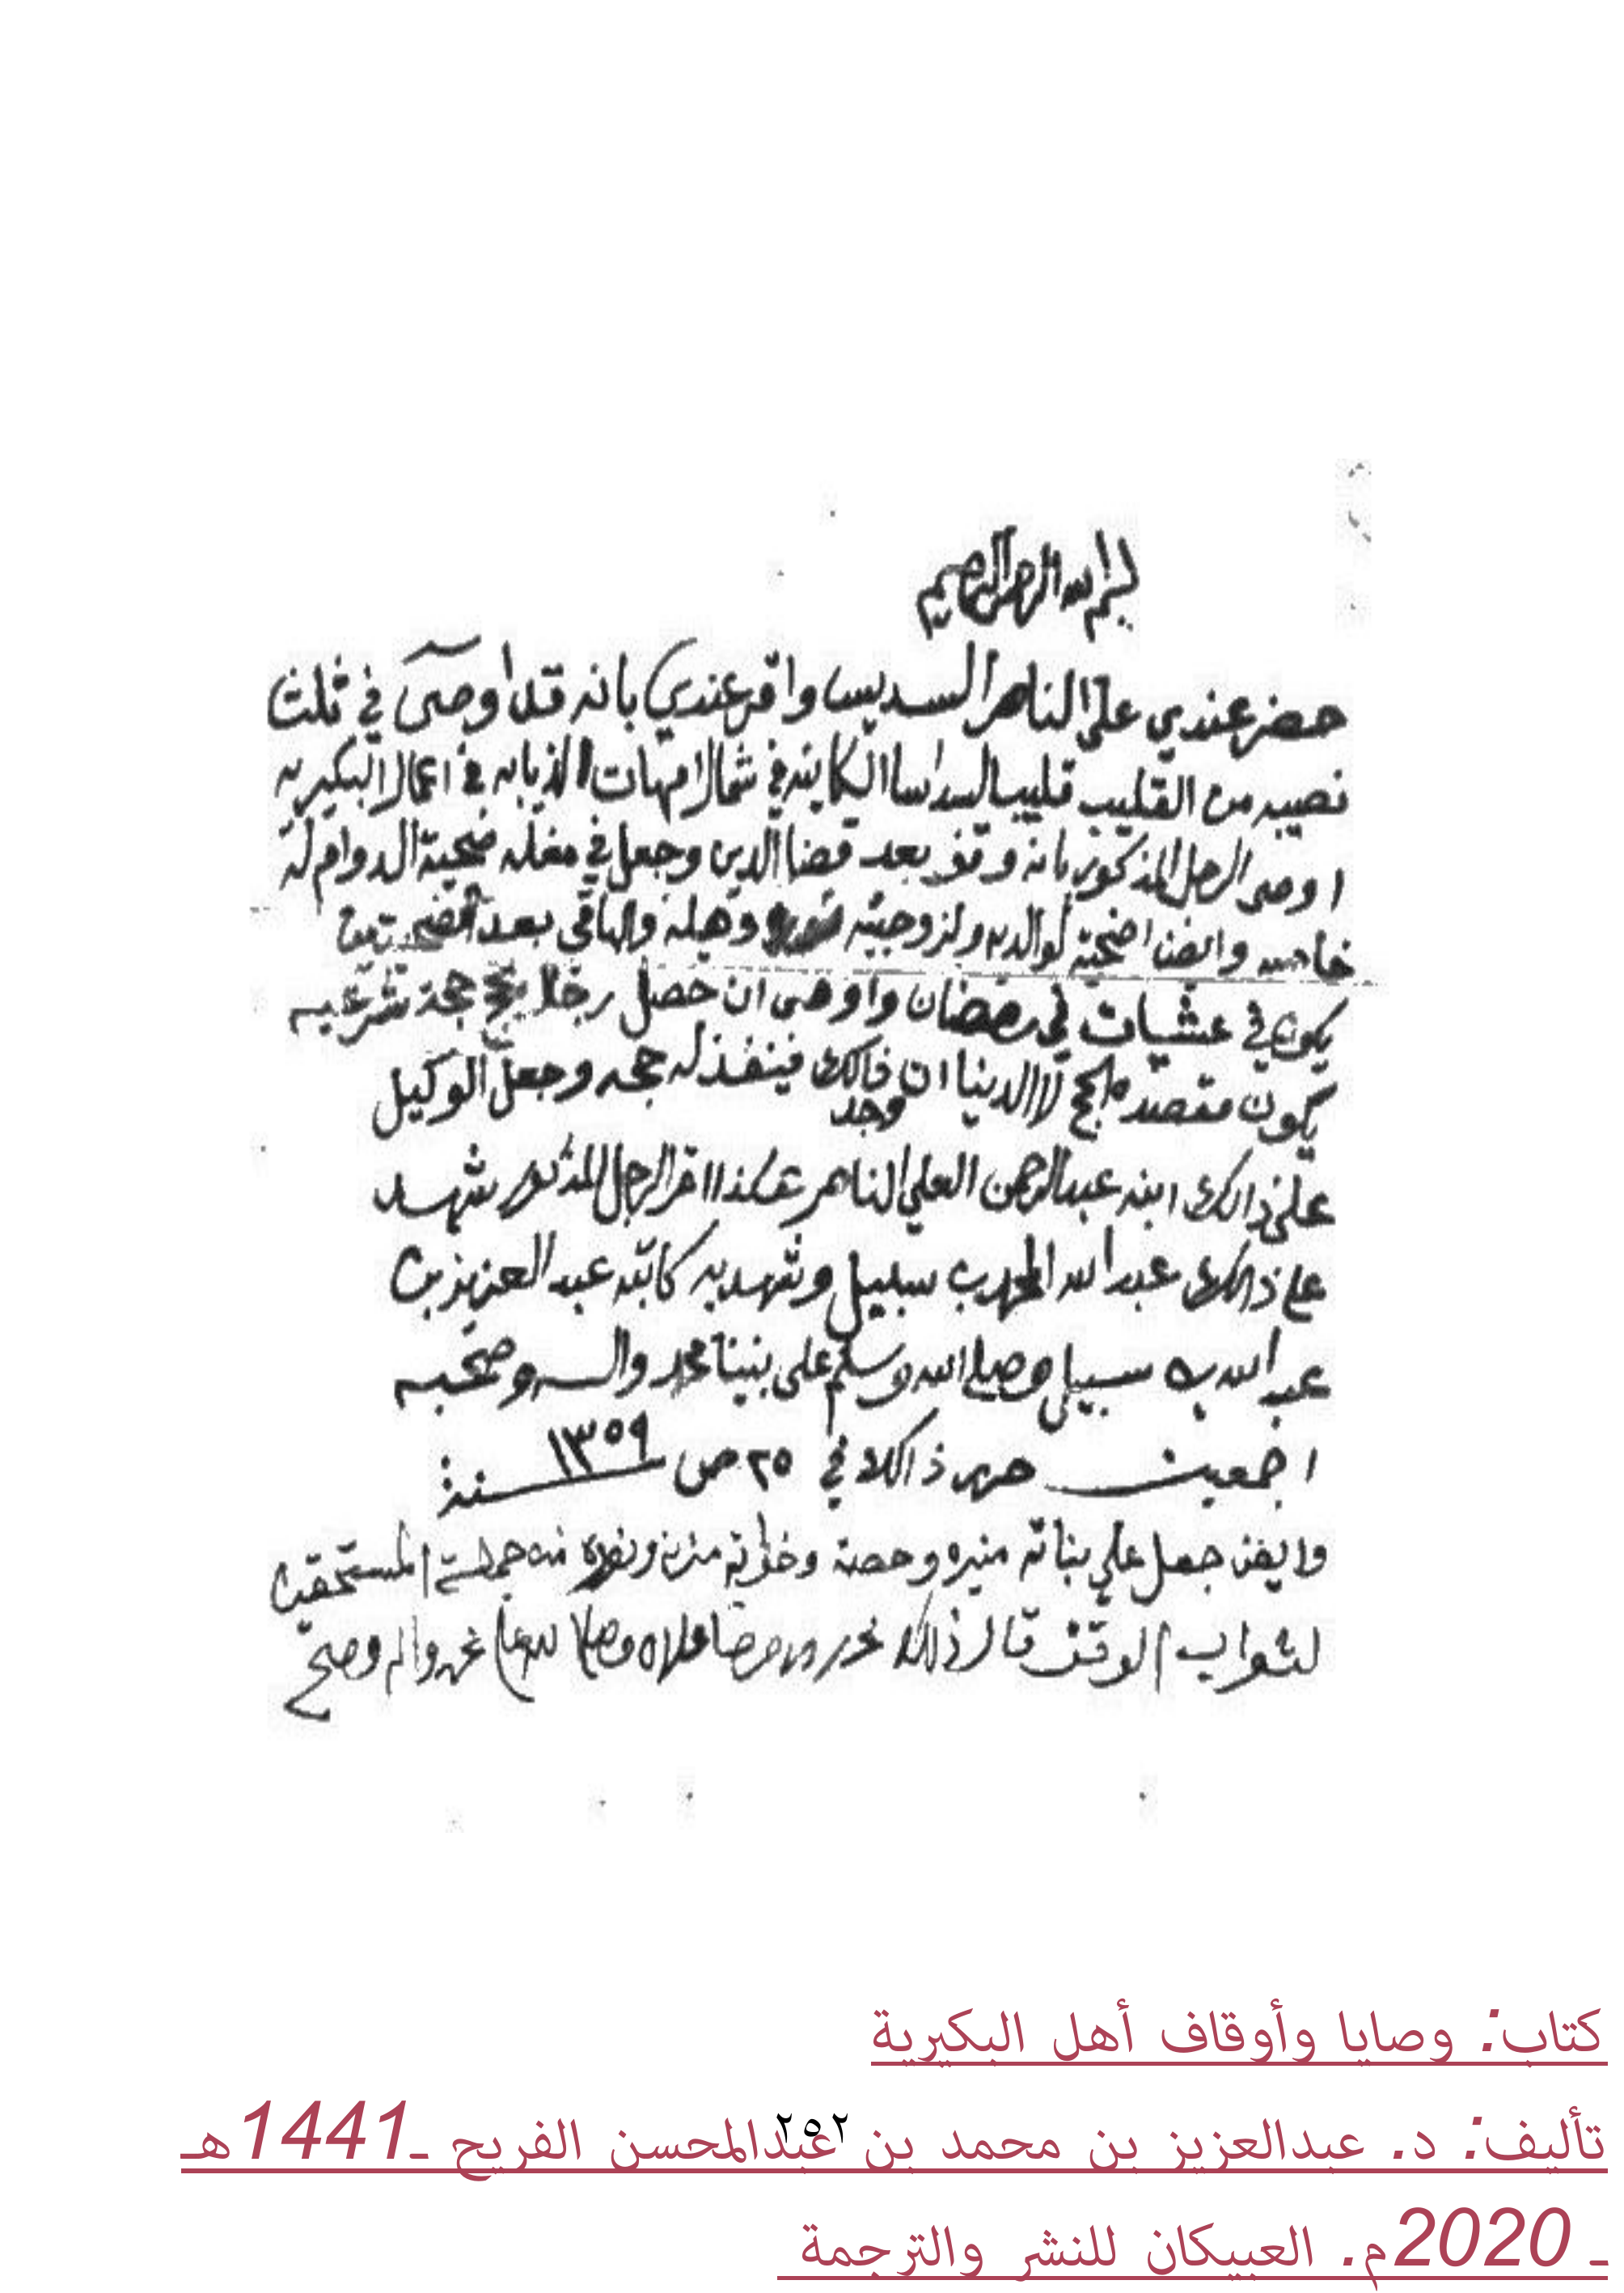 بسم الله الرحمن الرحيم
حضر عندي علي الناصر السديس واقر عندي بانه قد اوصى في ثلث
نصيبه من القليب قليب السداسا الكاينه في شمال امهات الذيابه في اعمال البكيريه
اوصى الرجل المذكور بانه وقف بعد قضا الدين وجعل في مغله ضحية الدوام له
خاصه وايضا اضحية لوالديه ولزوجيته نوره وهيله والباقي بعد الضحيتين
يكون في عشيات في رمضان واوصى ان حصل رجلا يحج حجة شرعيه
يكون مقصده الحج لا الدنيا ان وجد ذالك فينفذ له حجه وجعل الوكيل
على ذالك ابنه عبدالرحمن العلي الناصر هكذا اقر الرجل المذكور شهد
على ذالك عبدالله المحمد بن سبيل وشهد به كاتبه عبدالعزيز بن
عبدالله بن سبيل وصلى الله وسلم على نبينا محمد واله وصحبه
اجمعين حرر ذالك في ٢٥ ص ١٣٥٩ سنة
وايضا جعل علي بناته منيره وحصة وخواته مزنه ونوره من جملت المستحقين
لثواب الوقف قال ذلك وصلى الله على محمد واله وصح
كتاب: وصايا وأوقاف أهل البكيرية
تأليف: د. عبدالعزيز بن محمد بن عبدالمحسن الفريح ـ1441هـ
٢٥٢
ـ 2020م. العبيكان للنشر والترجمة